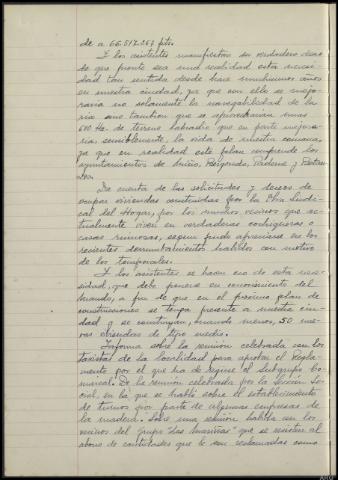 de a 66.517.267 ptas.
Y los asistentes manifiestan su verdadero deseo
de que pronto sea una realidad esta necesi
dad tan sentida desde hace muchisimos años
en nuestra ciudad, ya que con ello se mejo-
raria no solamente la navegabilidad de la
ria sino tambien que se aprovecharan unas
600 Ha. de terreno labradio que en parte mejora-
ria sensiblemente la vida de nuestra comarca,
ya que en realidad este plan comprende los
ayuntamientos de Miño, Bergondo, Paderne y Betan-
zos.
Da cuenta de las solicitudes y deseos de
ocupar viviendas construidas por la Obra Sindi-
cal del Hogar, por los muchos vecinos que ac-
tualmente viven en verdaderas
casas ruinosas, segun pudo apreciarse en los
recientes derrumbamientos habidos con motivo
de los temporales.
Y los asistentes se hacen eco de esta nece-
sidad, que debe ponerse en conocimiento del
Mando, a fin de que en el proximo plan de
construcciones se tenga presente a nuestra ciu-
dad y se construyan, cuando menos, 50 nue-
vas viviendas de tipo medio.
Informa sobre la reunion celebrada con los
taxistas de la localidad para aprobar el Regla-
mento por el que ha de regirse el Subgrupo co-
marcal. De la reunion celebrada por la Seccion So-
cial, en la que se habló sobre el establecimiento
de turnos por parte de algunas empresas de
la madera. Sobre una reunion habida con los
vecinos del Grupo "Las Mariñas" que se resisten al
abono de cantidades que le son reclamadas como